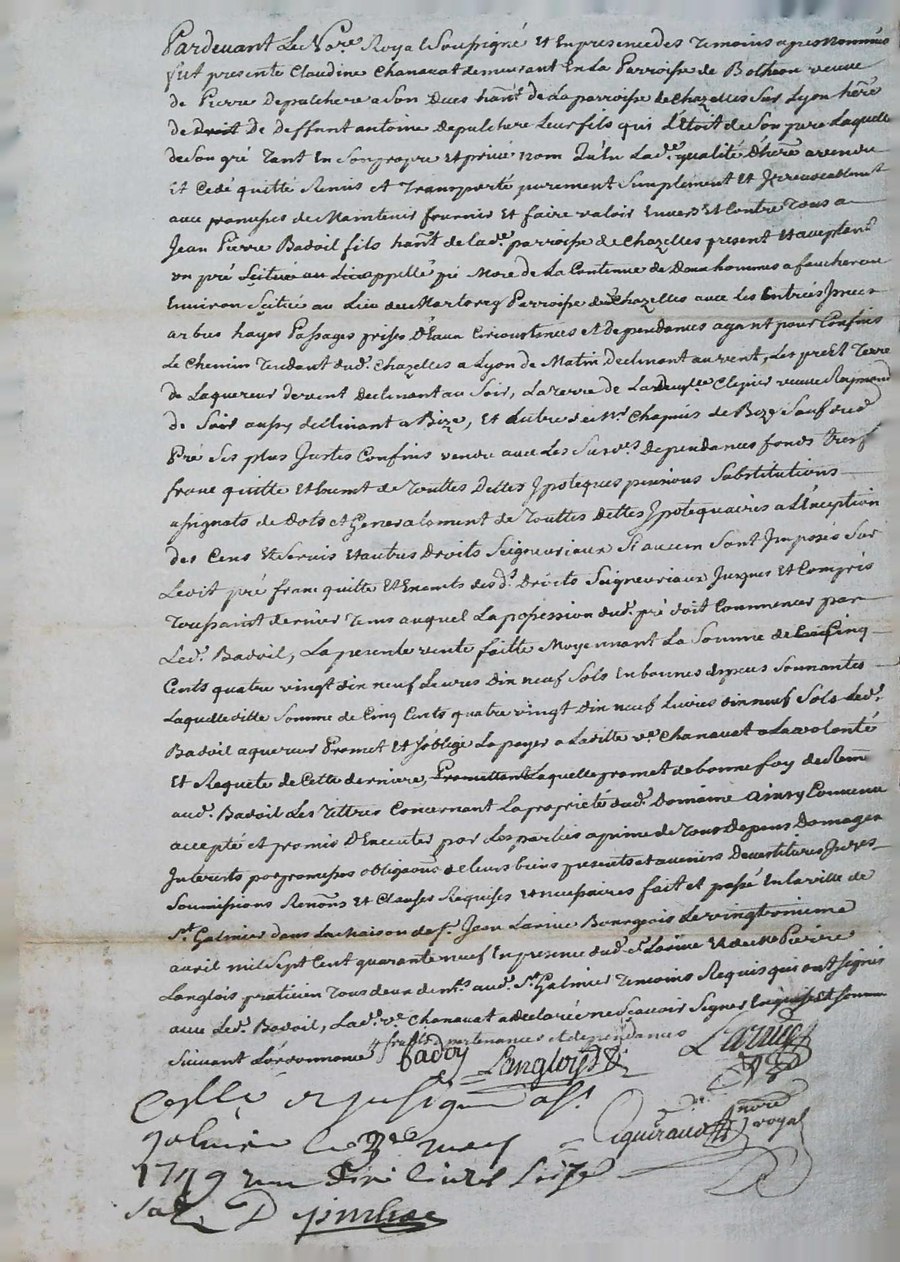 Pardevant Le No.re Royal Soussigné Et En presence des Temoins apres nommés
fut presente Claudine Chanavat demeurant En La Parroisse de Botheon veuve
de Pierre Depulchere a Son Dues han.t de La parroisse de Chazelles Sur Lyon here
de droit De deffunt antoine Depulchere Leur fils qui L'Etoit de Son pere Laquelle
de Son gré Tant En Son propre Et privé nom Qu'En La d.e qualité d'here a vendu
Et Cedé quitté Remis et Transporté purement Simplement Et Irrevocablem.t
avec promesses de Maintenir fournir Et faire valoir Envers Et Contre Tous a
Jean Pierre Badoil fils han.t de la d.e parroisse de Chazelles present Et acceptan.t
un pré Scitué au Lieu appellé pré More de La Contenue de Deux hommes a faucher ou
Environ Scitué au Lieu du Parroisse de Chazelles avec les Entrées Issues
arbres hayes Passages prises D'Eaux Circonstances et dependances ayant pour Confins
Le Chemin Tendant dud. Chazelles a Lyon de Matin Declinant au vent, Les pré Et Terre
de Laquereur de vent Declinant au Soir, La Terre de La Clepier veuve Raymond
de Soir aussy declinant a Bize, Et autre de M.r Chapuis de Bize Sauf dud.
Pré Ses plus Justes Confins vendu avec Les Susd.es Dependances fonds tresf
franc quitte Et Exempt de Touttes Dettes Ypoteques pensions Substitutions
asignats de Dots et Generalement de Touttes Dettes Ypotequaires a L'Exception
des Cens Et Servis Et autres Droits Seigneuriaux Si aucun Sont Imposés Sur
Ledit pré franc quitte Et Exempts des d.s Droits Seigneuriaux Jusques Et Compris
Toussaint dernier Tems auquel La possession dud. pré doit Commencer par
Led. Badoil, La presente vente faitte Moyennant La Somme de Cinq
Cents quatre vingt dix neuf Livres dix neuf Sols En bonnes Especes Sonnantes
Laquelle ditte Somme de Cinq Cents quatre vingt dix neuf Livres dix neuf Sols Led.
Badoil aquereur Promet Et S'oblige La payer a Laditte v.e Chanavat a La volonté
Et Requete de Cette derniere, Promettant Laquelle promet de bonne foy de Rem.e
aud. Badoil Les Tittres Concernant La proprieté dud. Domaine Ainsy Convenu
accepté et promis D'Executer par Les parties a peine de Tous depens Domages
Interests par promesses obligaõns de leurs biens presents et avenirs Devestitures Invest.
Soumissions Renõns Et Clauses Requises et necessaires fait et passé En La ville de
S.t Galmier dans La Maison de S.r Jean Larive Bourgeois Le vingt troisieme
avril mil Sept Cent quarante neuf En presence dud. S.r Larive Et de M.e Pierre
Langlois praticien Tous deux dem.ts aud. S.t Galmier Temoins Requis qui ont Signés
avec Led. Badoil, La d.e v.e Chanavat a declaré ne Scavoir Signer Enquise Et Sommée
Suivant L'ordonnance fruits partenances et dependances
badoy Langlois Larive
Collé 
galmier Le 3.e may
1749
Aguiraud no.re royal